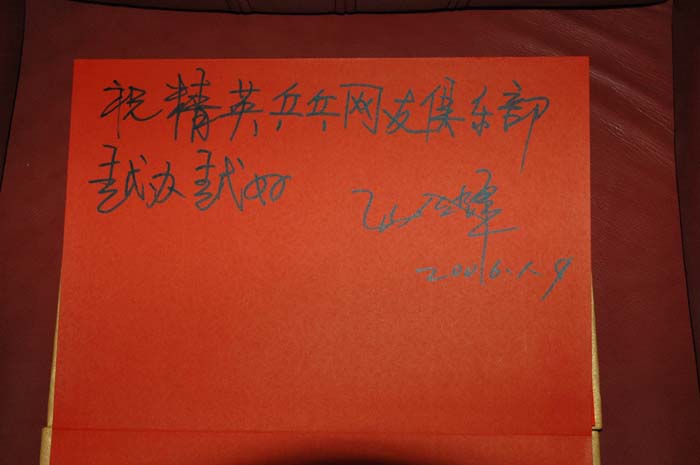 祝精英乒乓网友俱乐部
越办越好
2006.1.9